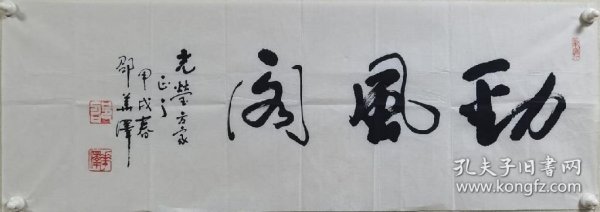 劲風阁
光莹方家
正之
甲戌春
邵華澤
孔夫子旧书网
www.kongfz.com